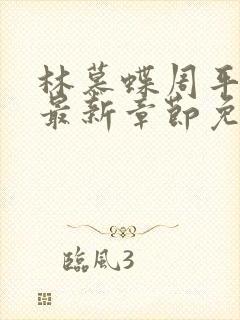 林慕蝶周平
最新章節免
臨風3